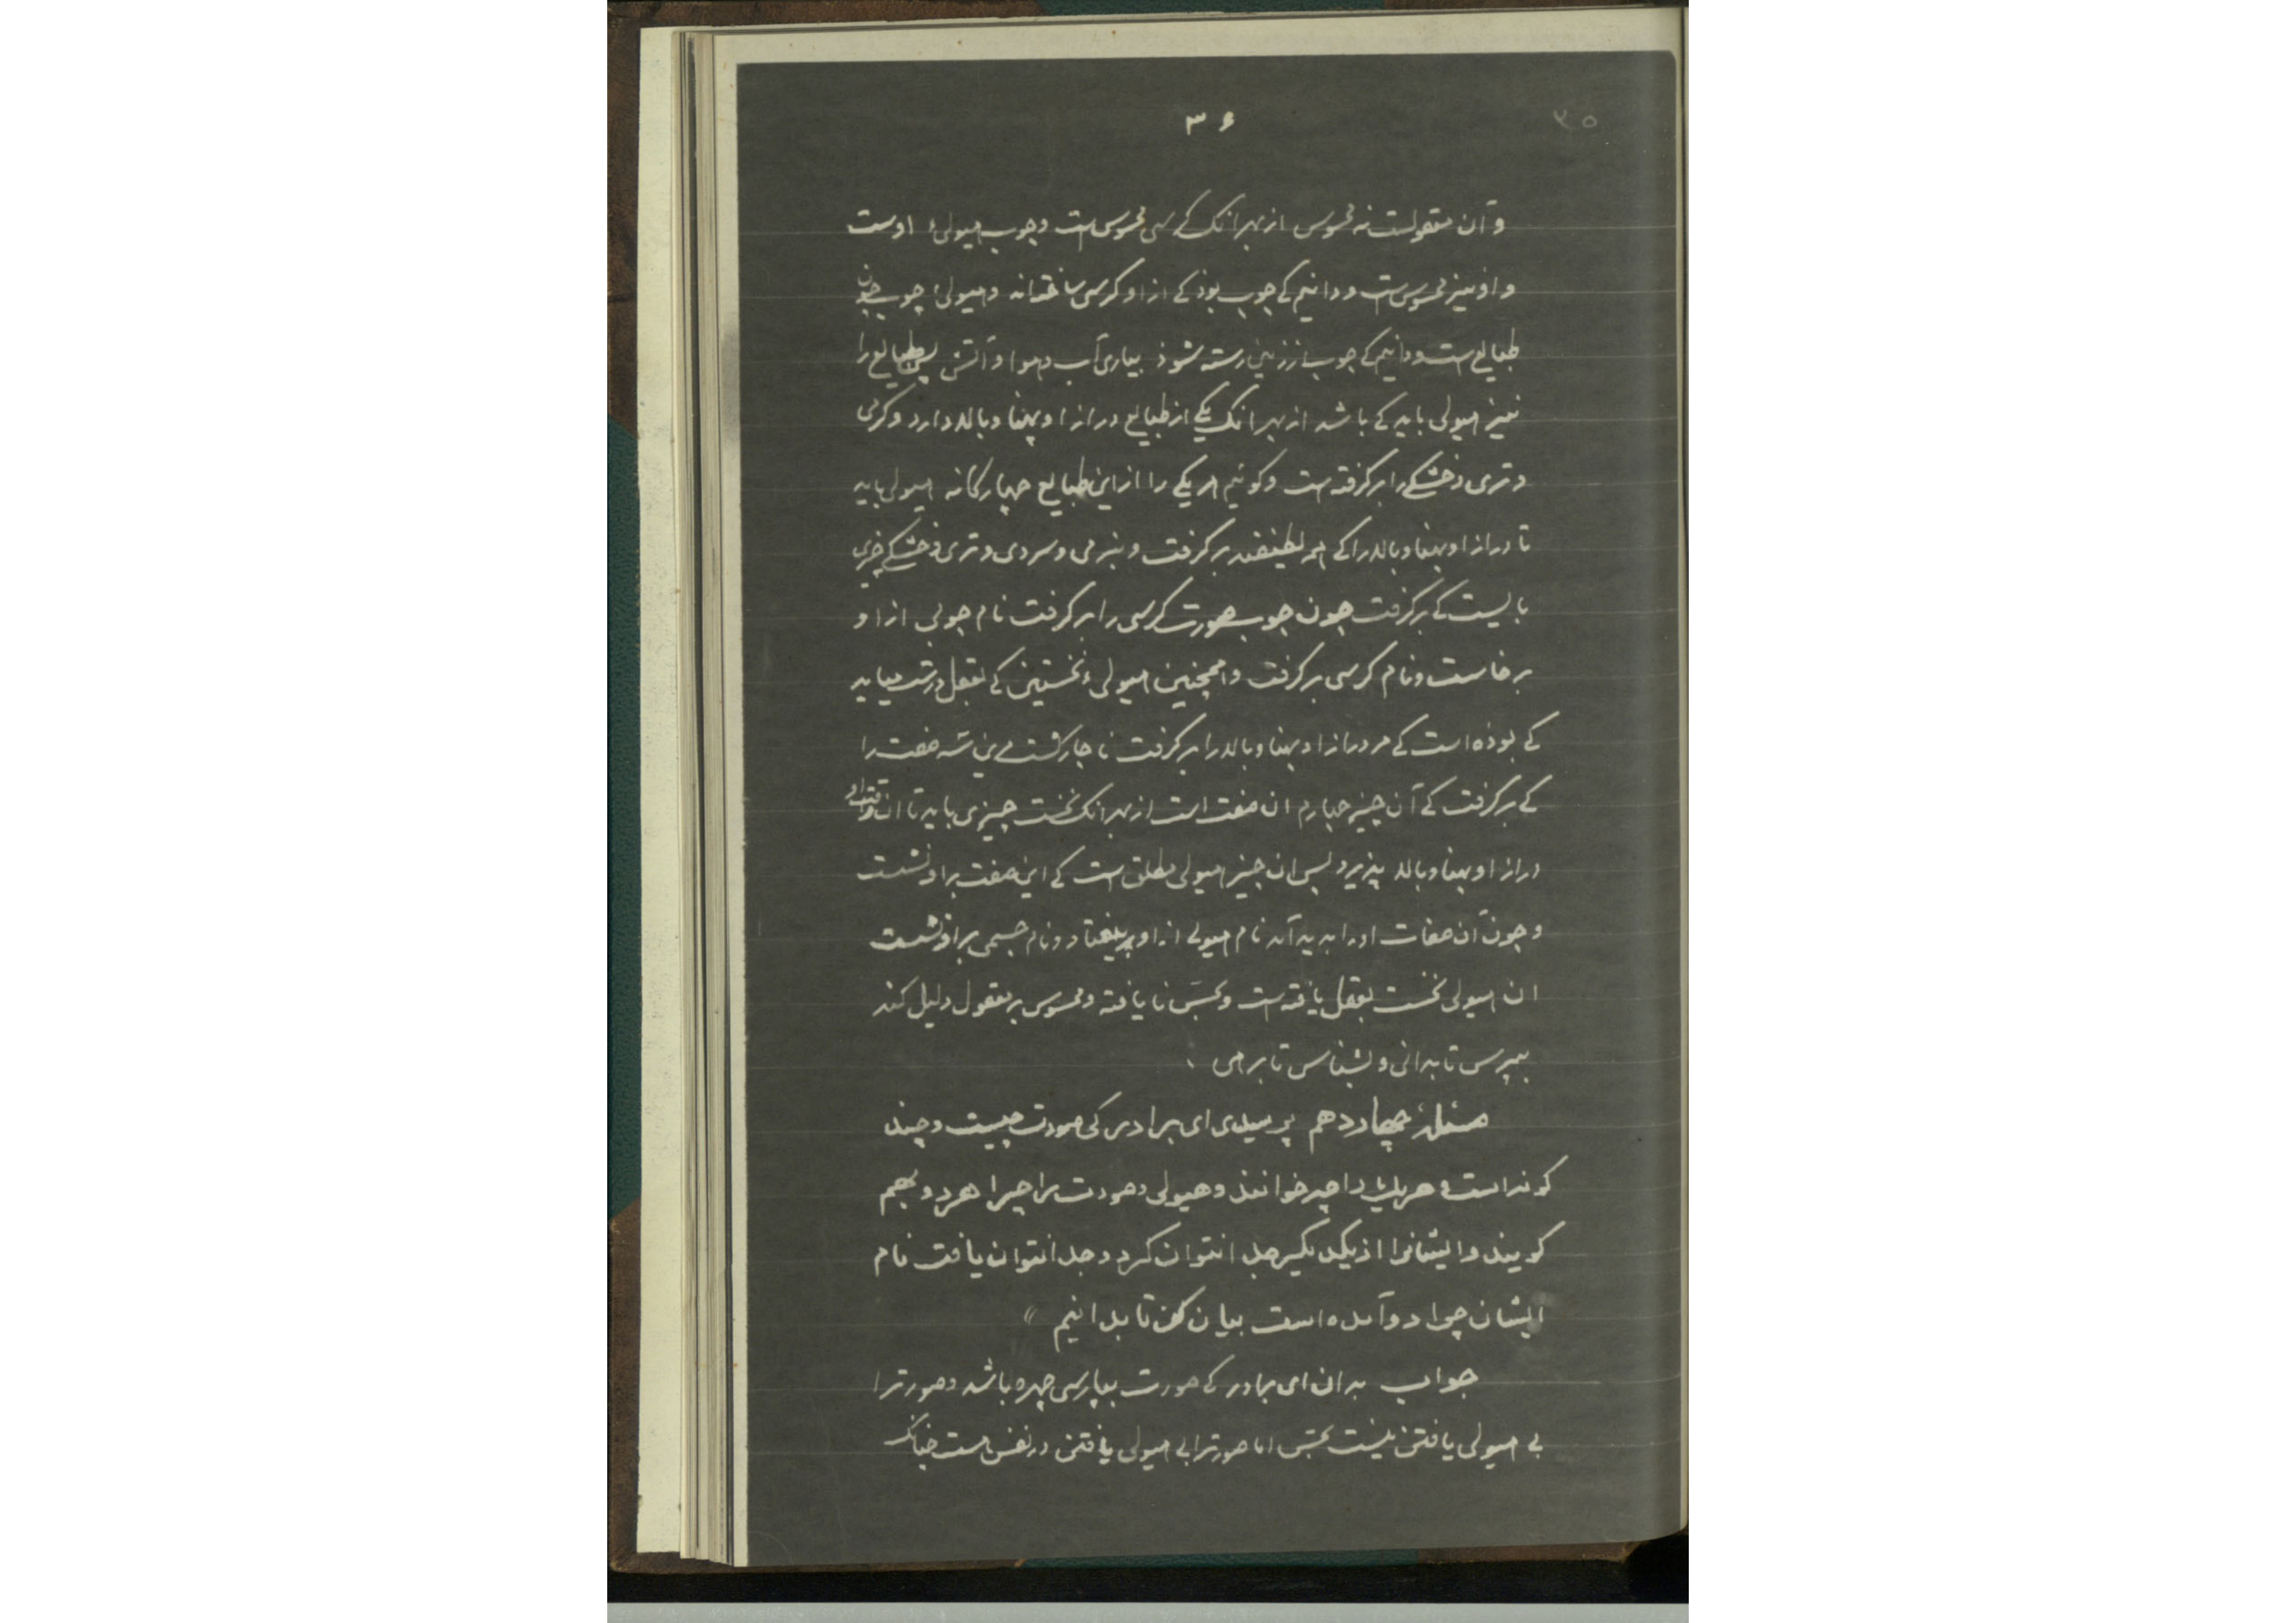 ۳۶
۳۵
و آن معقولست نه محسوس از بهر انک کرسی محسوس است و چوب هیولیء اوست
و او نیز محسوس است و دانیم کے چوب بوذ کے از او کرسی ساختهاند و هیولیء چوب چون
طبایع است و دانیم کے چوب از زمین رسته شوذ بیاری آب و هوا و آتش پس طبایع را
نیز هیولی باید کے باشد از بهر انک یکے از طبایع درازا و پهنا و بالا دارد و گرمی
و تری و خشکے را برگرفته است و گوئیم هر یکے را از این طبایع چهارگانه هیولی باید
تا درازا و پهنا و بالا را کے همه لطیفند برگرفت و نیز گرمی و سردی و تری و خشکے چیزی
بایست کے برگرفت چون چوب صورت کرسی را برگرفت نام چوبی از او
برخاست و نام کرسی برگرفت و همچنین هیولیء نخستین کے بعقل درست میاید
کے بوذه است کے مر درازا و پهنا و بالا را برگرفت ناچار گشت مرین سه صفت را
کے برگرفت کے آن چیز چهارم ان صفت است از بهر انک نخست چیزی باید تا ان
درازا و پهنا و بالا پذیرد پس ان چیز هیولی مطلق است کے این صفت براو نشست
و چون آن صفات او را پدید آمد نام هیولی از او بیفتاد و نام جسمی براو نشست
ان هیولی نخست بعقل یافته است و بحس نا یافته و محسوس بر معقول دلیل کند
بپرس تا بدانی و بشناس تا برهی
مسئلهٔ چهاردهم پرسیدی ای برادر کی صورت چیست و چند
گونه است و هر یکی را چه خوانند و هیولی و صورت را چرا هر دو بهم
گویند و ایشانرا از یکدیگر جدا نتوان کرد و جدا نتوان یافت نام
ایشان چرا دو آمده است بیان کن تا بدانیم
جواب بدان ای برادر کے صورت بپارسی چهره باشد و صورترا
بے هیولی یافتن نیست بحس اما صورترا بی هیولی یافتن در نفس است چنانک